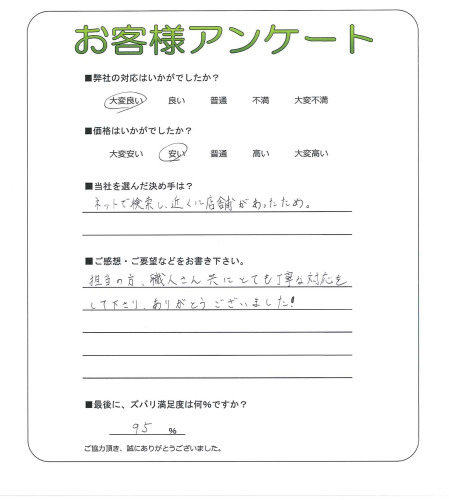 お客様アンケート
■弊社の対応はいかがでしたか？
大変良い 良い 普通 不満 大変不満
■価格はいかがでしたか？
大変安い 安い 普通 高い 大変高い
■当社を選んだ決め手は？
ネットで検索し、近くに店舗があったため。
■ご感想・ご要望などをお書き下さい。
担当の方、職人さん共にとても丁寧な対応を
して下さり、ありがとうございました!
■最後に、ズバリ満足度は何%ですか？
95 %
ご協力頂き、誠にありがとうございました。